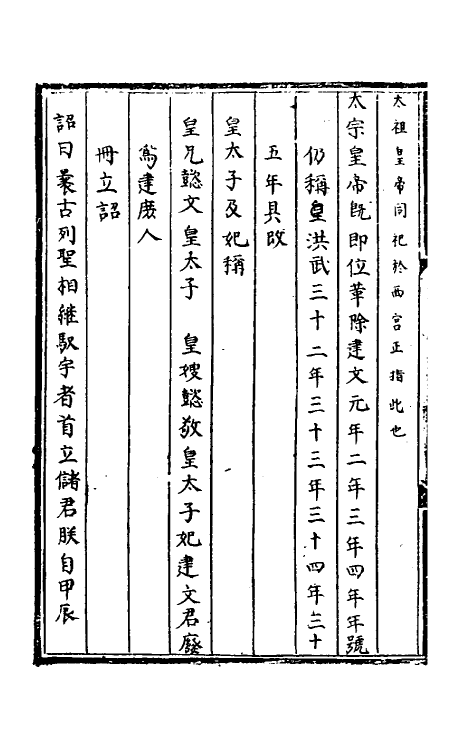 太祖皇帝同祀於西宮正指此也
太宗皇帝旣即位革除建文元年二年三年四年年號
仍稱皇洪武三十二年三十三年三十四年三十
五年具改
皇太子及妃稱
皇兄懿文皇太子　皇嫂懿敬皇太子妃建文君廢
為建庶人
冊立詔
詔曰蓑古列聖相繼馭宇者首立儲君朕自甲辰